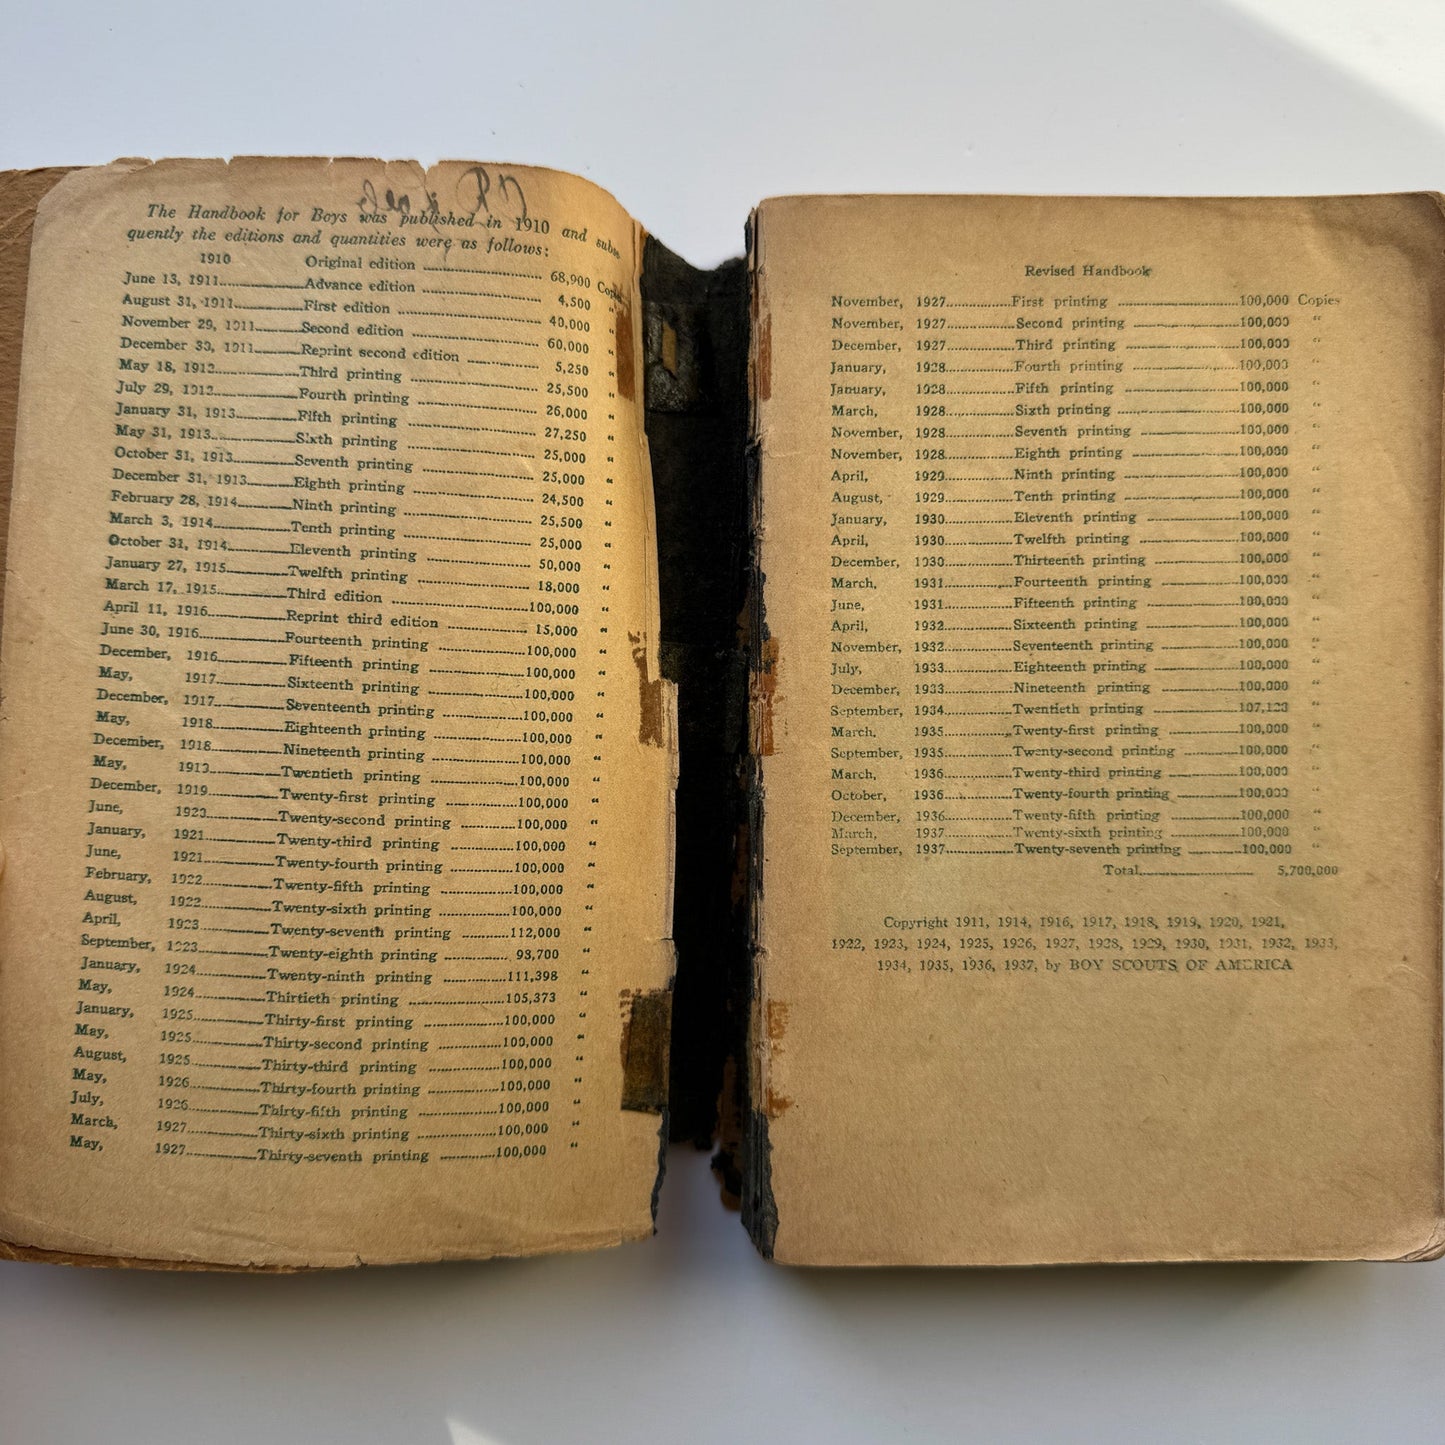 The Handbook for Boys was published in 1910 and subse-
quently the editions and quantities were as follows:
1910 Original edition ........ 68,900 Copies
June 13, 1911........Advance edition ........ 4,500 "
August 31, 1911........First edition ........ 40,000 "
November 29, 1911........Second edition ........ 60,000 "
December 30, 1911........Reprint second edition ........ 5,250 "
May 18, 1912........Third printing ........ 25,500 "
July 29, 1912........Fourth printing ........ 26,000 "
January 31, 1913........Fifth printing ........ 27,250 "
May 31, 1913........Sixth printing ........ 25,000 "
October 31, 1913........Seventh printing ........ 25,000 "
December 31, 1913........Eighth printing ........ 24,500 "
February 28, 1914........Ninth printing ........ 25,500 "
March 3, 1914........Tenth printing ........ 25,000 "
October 31, 1914........Eleventh printing ........ 50,000 "
January 27, 1915........Twelfth printing ........ 18,000 "
March 17, 1915........Third edition ........ 100,000 "
April 11, 1916........Reprint third edition ........ 15,000 "
June 30, 1916........Fourteenth printing ........ 100,000 "
December, 1916........Fifteenth printing ........ 100,000 "
May, 1917........Sixteenth printing ........ 100,000 "
December, 1917........Seventeenth printing ........ 100,000 "
May, 1918........Eighteenth printing ........ 100,000 "
December, 1918........Nineteenth printing ........ 100,000 "
May, 1919........Twentieth printing ........ 100,000 "
December, 1919........Twenty-first printing ........ 100,000 "
June, 1920........Twenty-second printing ........ 100,000 "
January, 1921........Twenty-third printing ........ 100,000 "
June, 1921........Twenty-fourth printing ........ 100,000 "
February, 1922........Twenty-fifth printing ........ 100,000 "
August, 1922........Twenty-sixth printing ........ 100,000 "
April, 1923........Twenty-seventh printing ........ 112,000 "
September, 1923........Twenty-eighth printing ........ 93,700 "
January, 1924........Twenty-ninth printing ........ 111,398 "
May, 1924........Thirtieth printing ........ 105,373 "
January, 1925........Thirty-first printing ........ 100,000 "
May, 1925........Thirty-second printing ........ 100,000 "
August, 1925........Thirty-third printing ........ 100,000 "
May, 1926........Thirty-fourth printing ........ 100,000 "
July, 1926........Thirty-fifth printing ........ 100,000 "
March, 1927........Thirty-sixth printing ........ 100,000 "
May, 1927........Thirty-seventh printing ........ 100,000 "
Revised Handbook
November, 1927........First printing ........ 100,000 Copies
November, 1927........Second printing ........ 100,000 "
December, 1927........Third printing ........ 100,000 "
January, 1928........Fourth printing ........ 100,000 "
January, 1928........Fifth printing ........ 100,000 "
March, 1928........Sixth printing ........ 100,000 "
November, 1928........Seventh printing ........ 100,000 "
November, 1928........Eighth printing ........ 100,000 "
April, 1929........Ninth printing ........ 100,000 "
August, 1929........Tenth printing ........ 100,000 "
January, 1930........Eleventh printing ........ 100,000 "
April, 1930........Twelfth printing ........ 100,000 "
December, 1930........Thirteenth printing ........ 100,000 "
March, 1931........Fourteenth printing ........ 100,000 "
June, 1931........Fifteenth printing ........ 100,000 "
April, 1932........Sixteenth printing ........ 100,000 "
November, 1932........Seventeenth printing ........ 100,000 "
July, 1933........Eighteenth printing ........ 100,000 "
December, 1933........Nineteenth printing ........ 100,000 "
September, 1934........Twentieth printing ........ 107,123 "
March, 1935........Twenty-first printing ........ 100,000 "
September, 1935........Twenty-second printing ........ 100,000 "
March, 1936........Twenty-third printing ........ 100,000 "
October, 1936........Twenty-fourth printing ........ 100,000 "
December, 1936........Twenty-fifth printing ........ 100,000 "
March, 1937........Twenty-sixth printing ........ 100,000 "
September, 1937........Twenty-seventh printing ........ 100,000 "
Total........ 5,700,000
Copyright 1911, 1914, 1916, 1917, 1918, 1919, 1920, 1921,
1922, 1923, 1924, 1925, 1926, 1927, 1928, 1929, 1930, 1931, 1932, 1933,
1934, 1935, 1936, 1937, by BOY SCOUTS OF AMERICA